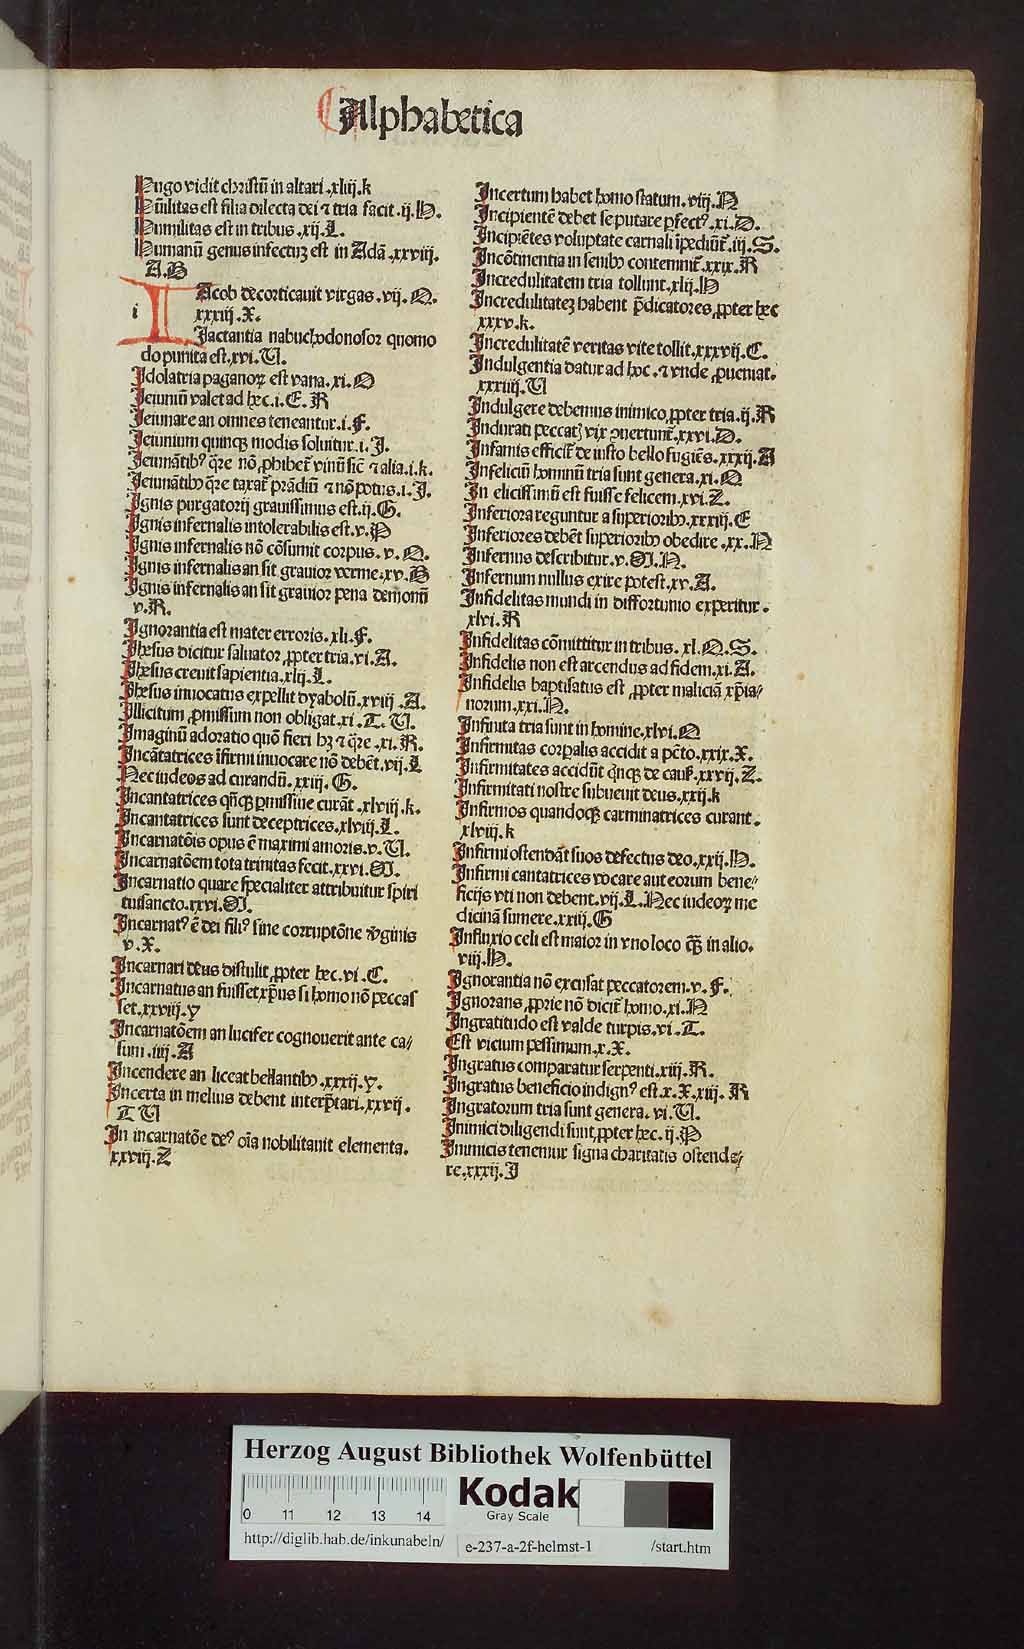 Alphabetica
Hugo vidit christū in altari .xliij.k
Hūilitas est filia dilecta dei ⁊ tria facit .ij.H.
Humilitas est in tribus .xij.L.
Humanū genus infectuȝ est in Adā .xxviij.
A.B
i
IAcob decorticauit virgas .vij.Q.
xxxiij.X.
Jactantia nabuchodonosor quomo
do punita est .xvi.U.
Idolatria paganoꝝ est vana .xi.O
Jeiuniū valet ad hec .i.E.R
Jeiunare an omnes teneantur .i.F.
Jeiunium quinqꝫ modis soluitur .i.J.
Jeiunātibꝰ q̄re nō ꝓhibet̄ vinū sic̄ ⁊ alia .i.k.
Jeiunātibꝫ q̄re taxat̄ prādiū ⁊ nō potus .i.J.
Ignis purgatorij grauissimus est .ij.G.
Ignis infernalis intolerabilis est .v.P
Ignis infernalis nō cōsumit corpus .v.Q.
Ignis infernalis an sit grauior verme .xv.B
Ignis infernalis an sit grauior pena demonū
v.R.
Ignorantia est mater erroris .xli.F.
Ihesus dicitur saluator ꝓpter tria .vi.A.
Ihesus creuit sapientia .xlij.L.
Ihesus inuocatus expellit dyabolū .xviij.A.
Illicitum ꝓmissum non obligat .xi.T.U.
Imaginū adoratio quō fieri hꝫ ⁊ q̄re .xi.R.
Incātatrices īfirmi inuocare nō debēt .vij.L
Nec iudeos ad curandū .xxiij.G.
Incantatrices qn̄qꝫ ꝑmissiue curāt .xlviij.k.
Incantatrices sunt deceptrices .xlviij.L.
Incarnatōis opus ē maximi amoris .v.U.
Incarnatōem tota trinitas fecit .xxvi.M.
Incarnatio quare specialiter attribuitur spiri
tuisancto .xxvi.M.
Incarnatꝰ ē dei filiꝰ sine corruptōne v̄ginis
v.X.
Incarnari deus distulit ꝓpter hec .vi.C.
Incarnatus an fuisset xp̄us si homo nō peccas
set .xxviij.y
Incarnatōem an lucifer cognouerit ante ca⸗
sum .iiij.A
Incendere an liceat bellantibꝫ .xxxij.y.
Incerta in melius debent interp̄tari .xxvij.
T U
In incarnatōe deꝰ oīa nobilitauit elementa.
xxviij.Z
Incertum habet homo statum .viij.N
Incipientē debet se putare ꝑfectꝰ .xi.D.
Incipiētes voluptate carnali īpediūt̄ .iij.S.
Incōtinentia in senibꝫ contemnit̄ .xxix.R
Incredulitatem tria tollunt .xlij.H
Incredulitateȝ habent p̄dicatores ꝓpter hec
xxxv.k.
Incredulitatē veritas vite tollit .xxxvij.C.
Indulgentia datur ad hoc . ⁊ vnde ꝓueniat.
xxxiiij.U
Indulgere debemus inimico ꝓpter tria .ij.R
Indurati peccatꝫ vix ꝯuertunt̄ .xxvi.D.
Infamis efficit̄ de iusto bello fugiēs .xxxij.A
Infeliciū hominū tria sunt genera .xi.Q
In elicissimū est fuisse felicem .xvi.Z.
Inferiora reguntur a superioribꝫ .xxxiij.E
Inferiores debēt superioribꝫ obedire .xx.N
Infernus describitur .v.M.N.
Infernum nullus exire potest .xv.A.
Infidelitas mundi in diffortunio experitur.
xlvi.R
Infidelitas cōmittitur in tribus .xl.Q.S.
Infidelis non est arcendus ad fidem .xi.A.
Infidelis baptisatus est ꝓpter maliciā xp̄ia⸗
norum .xxi.N.
Infinita tria sunt in homine .xlvi.Q
Infirmitas corꝑalis accidit a pctō .xxix.X.
Infirmitates accidūt q̄nqꝫ de cauẜ .xxvij.Z.
Infirmitati nostre subuenit deus .xxij.k
Infirmos quandoqꝫ carminatrices curant.
xlviij.k
Infirmi ostendāt suos defectus deo .xxij.H.
Infirmi cantatrices vocare aut eorum bene⸗
ficijs vti non debent .vij.L. Nec iudeoꝝ me
dicinā sumere .xxiij.G
Influxio celi est maior in vno loco qꝫ̄ in alio.
viij.H.
Ignorantia nō excusat peccatorem .v.F.
Ignorans ꝓprie nō dicit̄ homo .xi.N
Ingratitudo est valde turpis .vi.T.
Est vicium pessimum .x.X.
Ingratus comparatur serpenti .xiij.R.
Ingratus beneficio indignꝰ est .x.X.xiij.R
Ingratorum tria sunt genera .vi.U.
Inimici diligendi sunt ꝓpter hec .ij.P
Inimicis tenemur signa charitatis ostende⸗
re .xxxij.J
Herzog August Bibliothek Wolfenbüttel
0 11 12 13 14
Kodak
Gray Scale
http://diglib.hab.de/inkunabeln/ e-237-a-2f-helmst-1 /start.htm